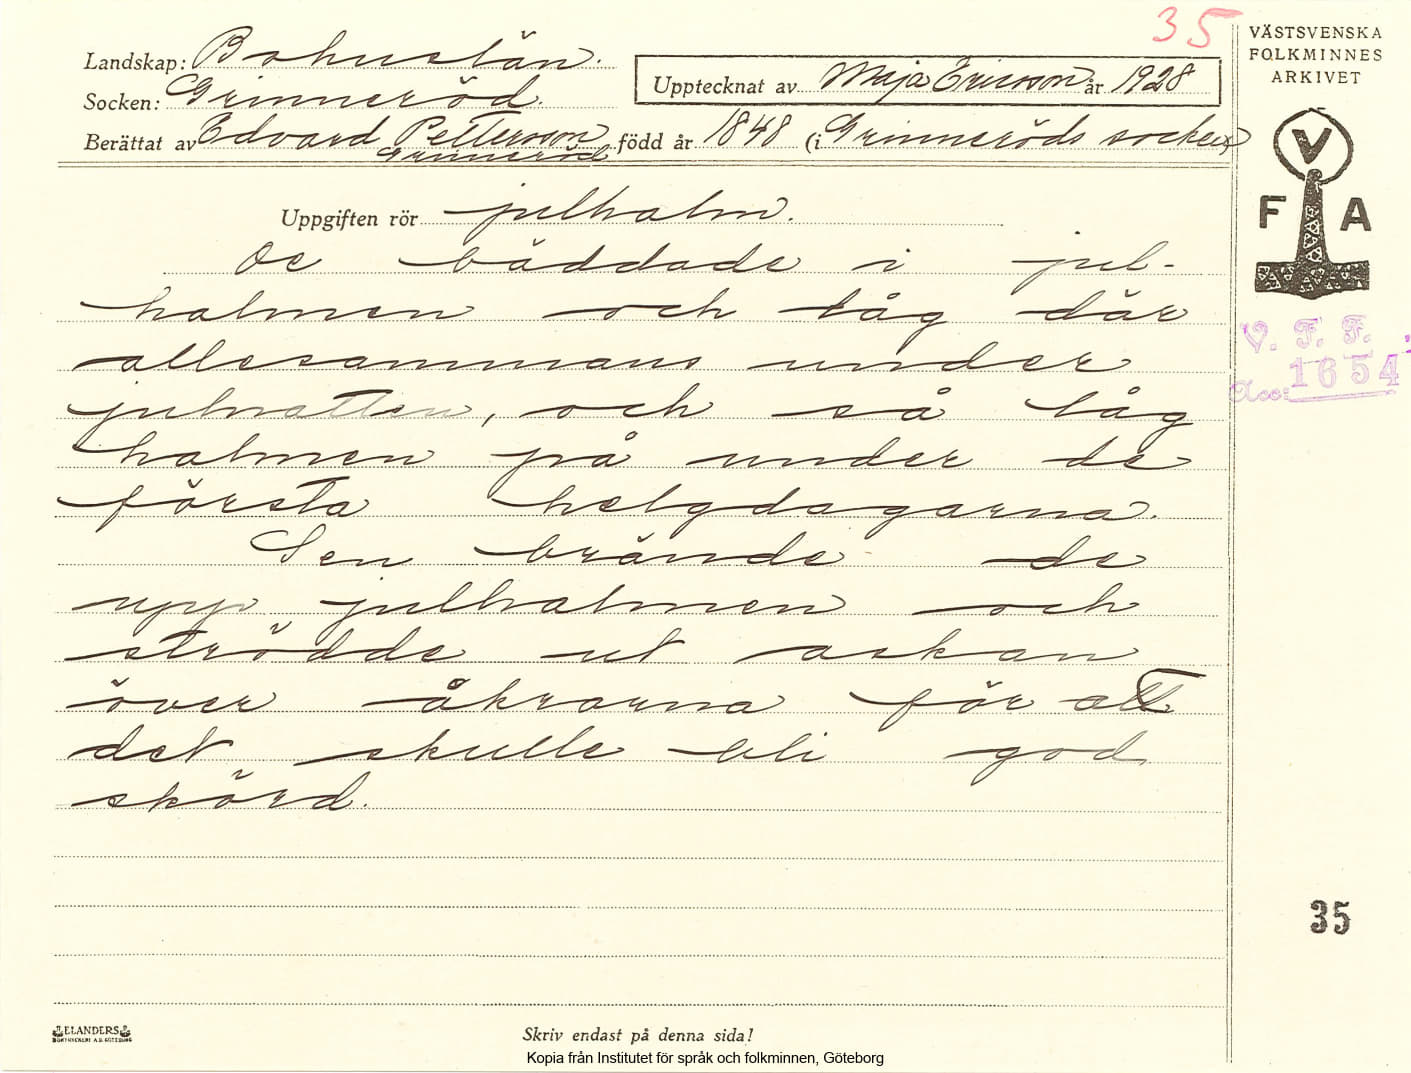 35
VÄSTSVENSKA
FOLKMINNES
ARKIVET
Landskap: Bohuslän.
Socken: Grinneröd.
Upptecknat av Maja Ericsson år 1928
Berättat av Edvard Pettersson född år 1848 (i Grinneröds socken)
Grinneröd
V
F A
Uppgiften rör julhalm.
De bäddade i jul-
halmen och låg där
allesammans under
julnatten, och så låg
halmen på under de
första helgdagarna.
Sen brände de
upp julhalmen och
strödde ut askan
över åkrarna för att
det skulle bli god
skörd.
V. F. F.
Acc: 1654
35
ELANDERS
BOKTRYCKERI A.B. GÖTEBORG
Skriv endast på denna sida!
Kopia från Institutet för språk och folkminnen, Göteborg